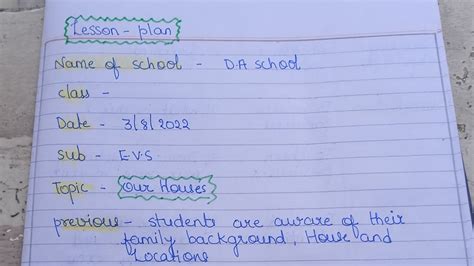 Lesson - plan
Name of school - D.A school
class -
Date - 3/8/2022
Sub - E.V.S
Topic - Our Houses
previous - students are aware of their
family background, House and
Locations